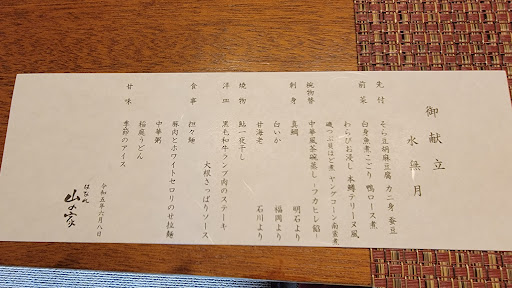 御献立
水無月
先付 そら豆胡麻豆腐 カニ身 蚕豆
前菜 白身魚煮こごり 鴨ロース煮
わらびお浸し 本鱒テリーヌ風
磯つぶ貝ほど煮 ヤングコーン南蛮煮
椀物替 中華風茶碗蒸し ~フカヒレ餡~
刺身 真鯛 明石より
白いか 福岡より
甘海老 石川より
焼物 鮎一夜干し
洋皿 黒毛和牛ランプ肉のステーキ
大根さっぱりソース
食事 担々麺
豚肉とホワイトセロリのせ拉麺
中華粥
稲庭うどん
甘味 季節のアイス
令和五年六月八日
はなれ
山の家